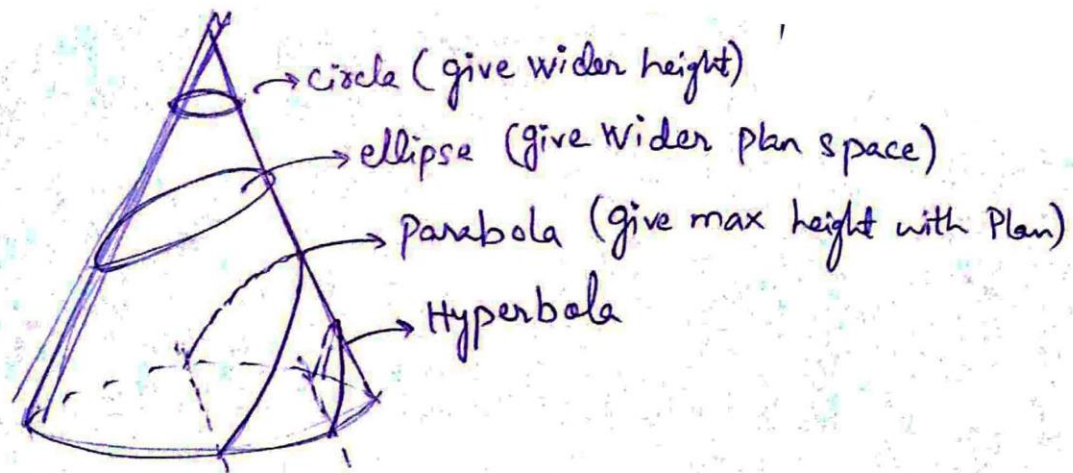 circle (give wider height)
ellipse (give wider plan space)
parabola (give max height with Plan)
Hyperbola